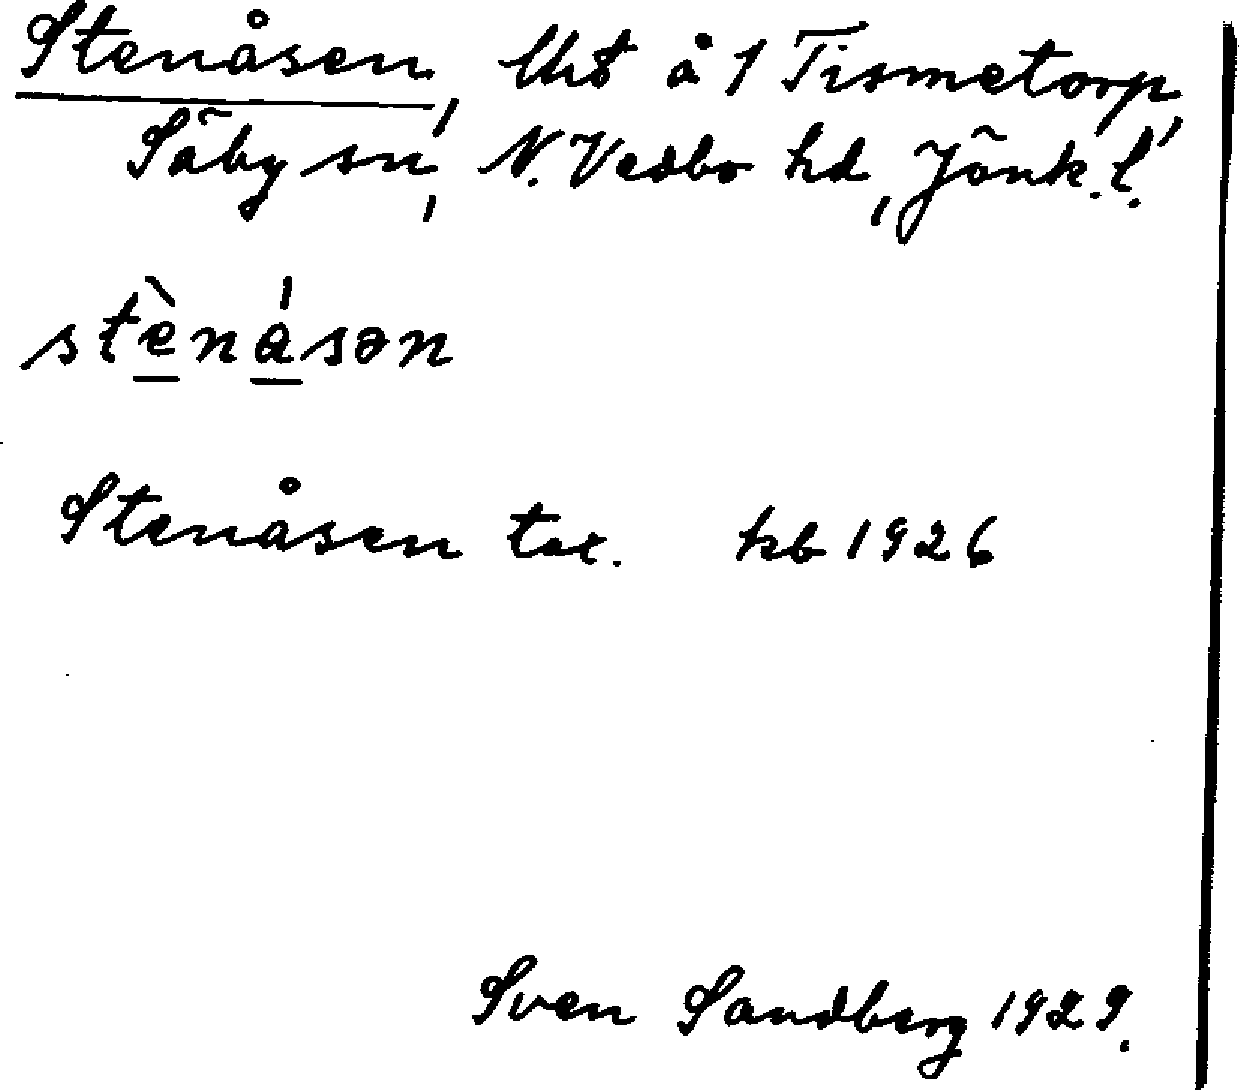 Stenåsen, lht å 1 Tismetorp,
Säby sn, N. Vedbo hd, Jönk. l.
stèn̲ásən
Stenåsen tor. kb 1926
Sven Sandberg 1929.